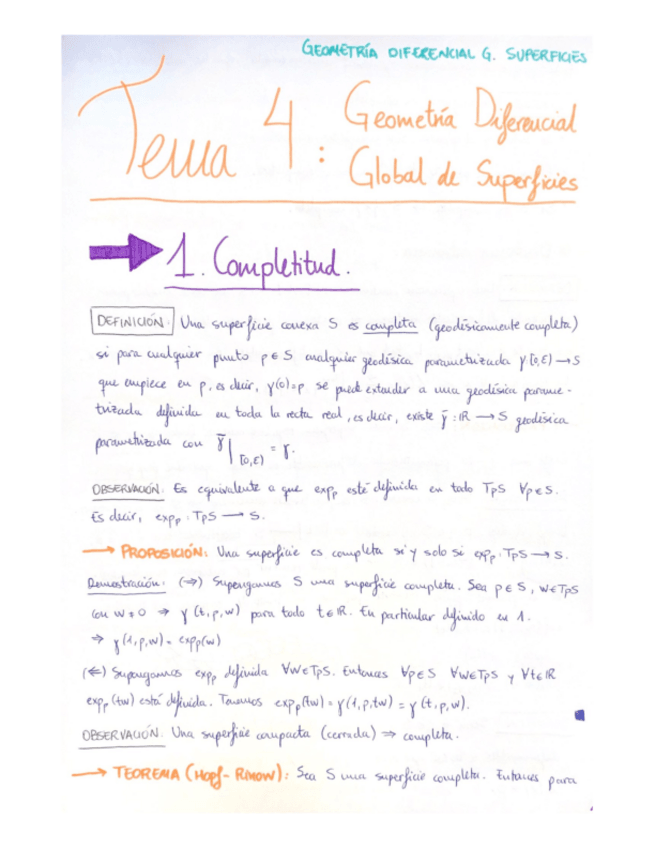 GEOMETRÍA DIFERENCIAL G. SUPERFICIES
Tema 4: Geometría Diferencial
Global de Superficies
1. Completitud.
DEFINICIÓN: Una superficie conexa S es completa (geodésicamente completa)
si para cualquier punto p ∈ S cualquier geodésica parametrizada γ [0,ε) → S
que empiece en p, es decir, γ(0)=p se puede extender a una geodésica parame-
trizada definida en toda la recta real, es decir, existe γ̄ : ℝ → S geodésica
parametrizada con γ̄|[0,ε) = γ.
OBSERVACIÓN: Es equivalente a que expₚ esté definida en todo TpS ∀p∈S.
Es decir, expₚ : TpS → S.
→ PROPOSICIÓN: Una superficie es completa si y solo si expₚ : TpS → S.
Demostración: (⇒) Supongamos S una superficie completa. Sea p ∈ S, w∈TpS
con w ≠ 0 ⇒ γ(t,p,w) para todo t∈ℝ. En particular definido en 1.
⇒ γ(1,p,w) = expₚ(w)
(⇐) Supongamos expₚ definida ∀w∈TpS. Entonces ∀p∈S ∀w∈TpS y ∀t∈ℝ
expₚ(tw) está definida. Tenemos expₚ(tw) = γ(1,p,tw) = γ(t,p,w).
OBSERVACIÓN: Una superficie compacta (cerrada) ⇒ completa.
→ TEOREMA (Hopf-Rinow): Sea S una superficie completa. Entonces para